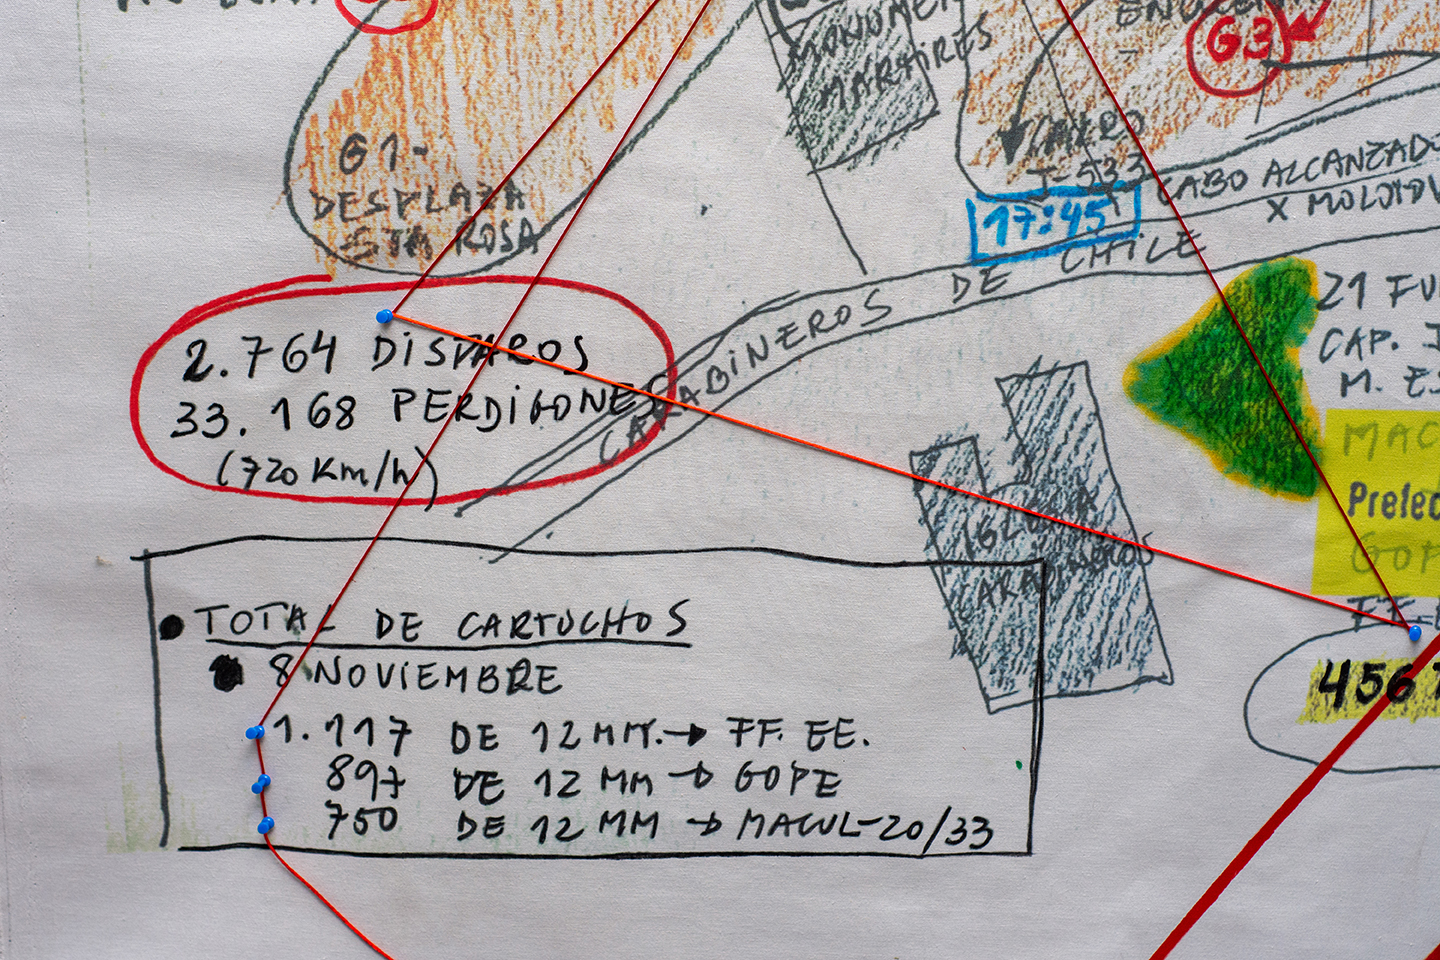 G3
MARTIRES
G1-
DESPLAZA
STA ROSA
T-533
17:45
CABO ALCANZADO
X MOLOTOV
CARABINEROS DE CHILE
2.764 DISPAROS
33.168 PERDIGONES
(720 Km/h)
21 FU
CAP.
M. ES
MAC
Prefec
GOP
FF.E
456
IGLESIA
CARABINEROS
TOTAL DE CARTUCHOS
8 NOVIEMBRE
1.117 DE 12 MM. → FF. EE.
897 DE 12 MM → GOPE
750 DE 12 MM → MACUL-20/33